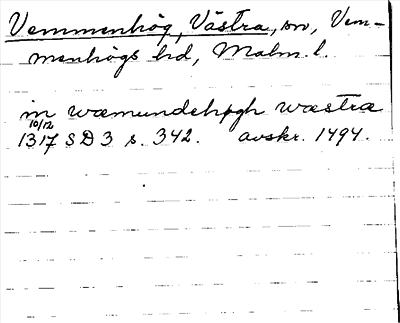 Vemmenhög, Västra, sn, Vem-
menhögs hd, Malm. l.
in wæmundehøgh wæstræ
10/12
1317 SD 3 s. 342. avskr. 1494.